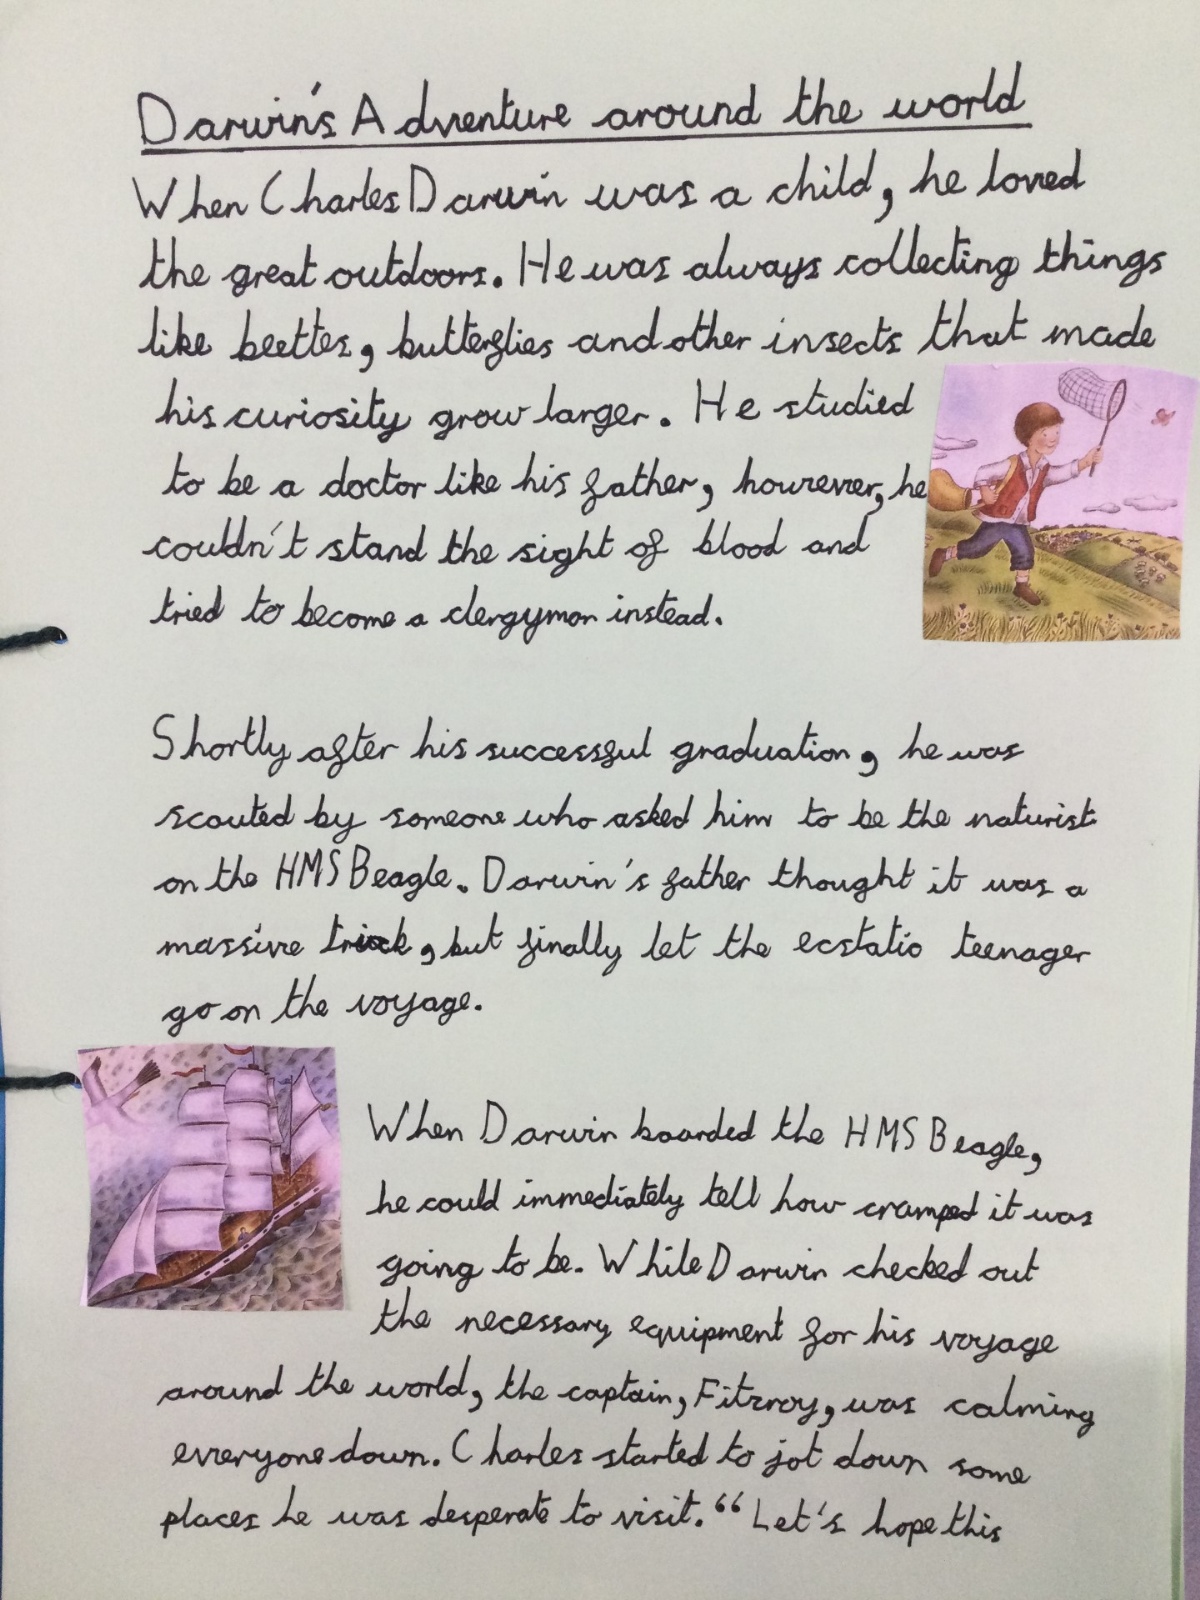 Darwin's Adventure around the world
When Charles Darwin was a child, he loved
the great outdoors. He was always collecting things
like beettes, butterflies and other insects that made
his curiosity grow larger. He studied
to be a doctor like his father, however, he
couldn't stand the sight of blood and
tried to become a clergyman instead.
Shortly after his successful graduation, he was
scouted by someone who asked him to be the naturist
on the HMS Beagle. Darwin's father thought it was a
massive trick, but finally let the ecstatic teenager
go on the voyage.
When Darwin boarded the HMS Beagle,
he could immediately tell how cramped it was
going to be. While Darwin checked out
the necessary equipment for his voyage
around the world, the captain, Fitzroy, was calming
everyone down. Charles started to jot down some
places he was desperate to visit. “Let's hope this